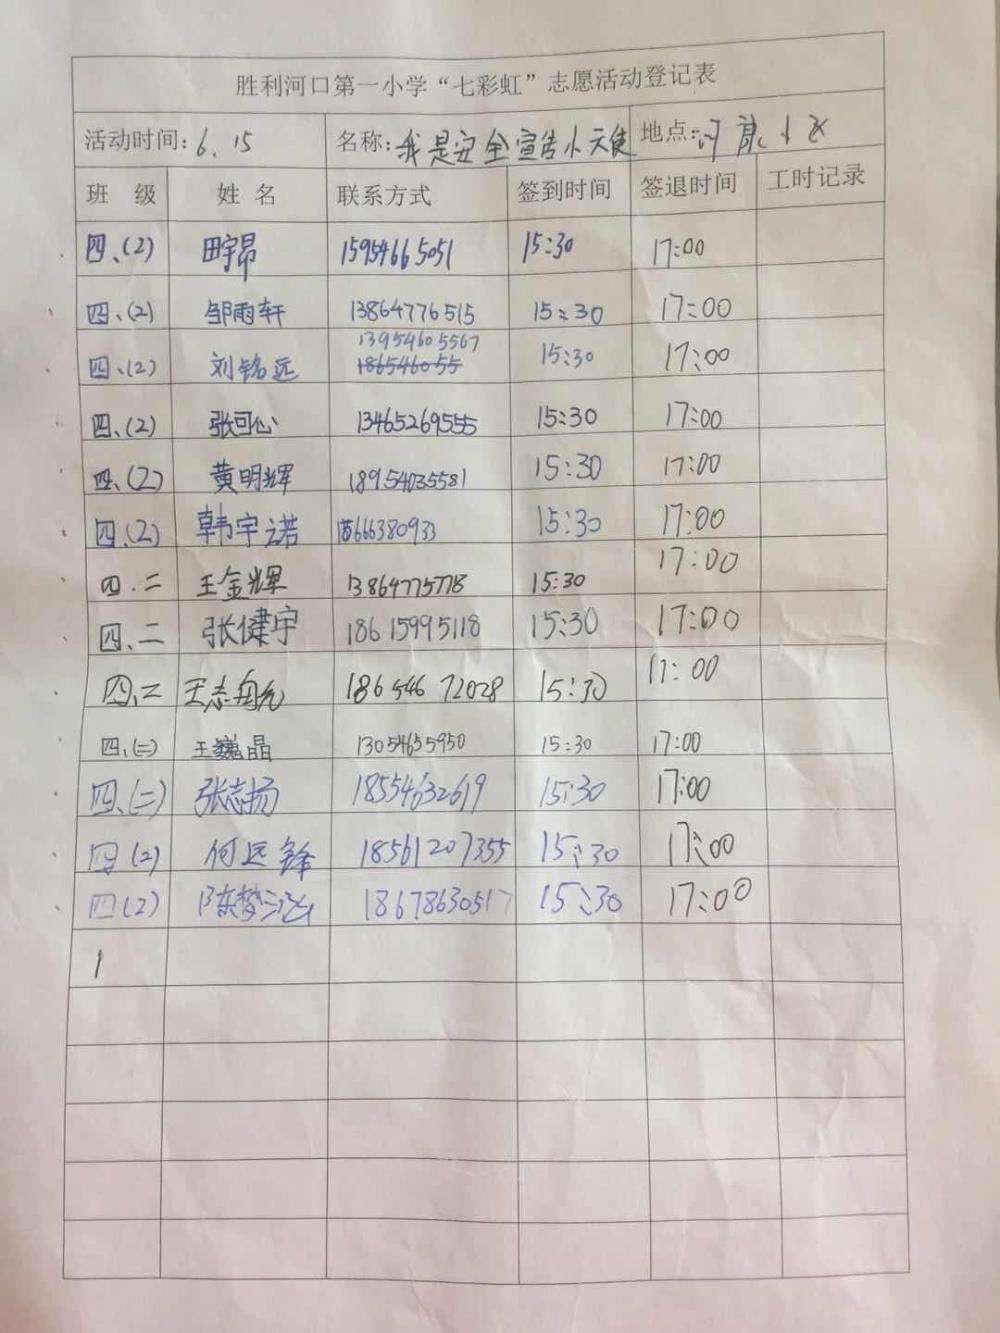 胜利河口第一小学“七彩虹”志愿活动登记表
活动时间: 6.15 名称: 我是安全宣传小天使 地点: 河 小区
班 级 姓 名 联系方式 签到时间 签退时间 工时记录
四、(2) 田宇昂 15954665051 15:30 17:00
四、(2) 邹雨轩 13864776515 15:30 17:00
13954605567
四、(2) 刘铭远 186546055 15:30 17:00
四、(2) 张可心 13465269555 15:30 17:00
四、(2) 黄明辉 18954035581 15:30 17:00
四、(2) 韩宇诺 666380933 15:30 17:00
四.二 王金辉 13864775778 15:30 17:00
四、二 张健宇 18615995118 15:30 17:00
四、二 王志 18654672028 15:30 17:00
四、(二) 王巍晶 13054655950 15:30 17:00
四、(二) 张志扬 18554632619 15:30 17:00
四(2) 何远锋 18561207355 15:30 17:00
四(2) 陈梦 18678630517 15:30 17:00